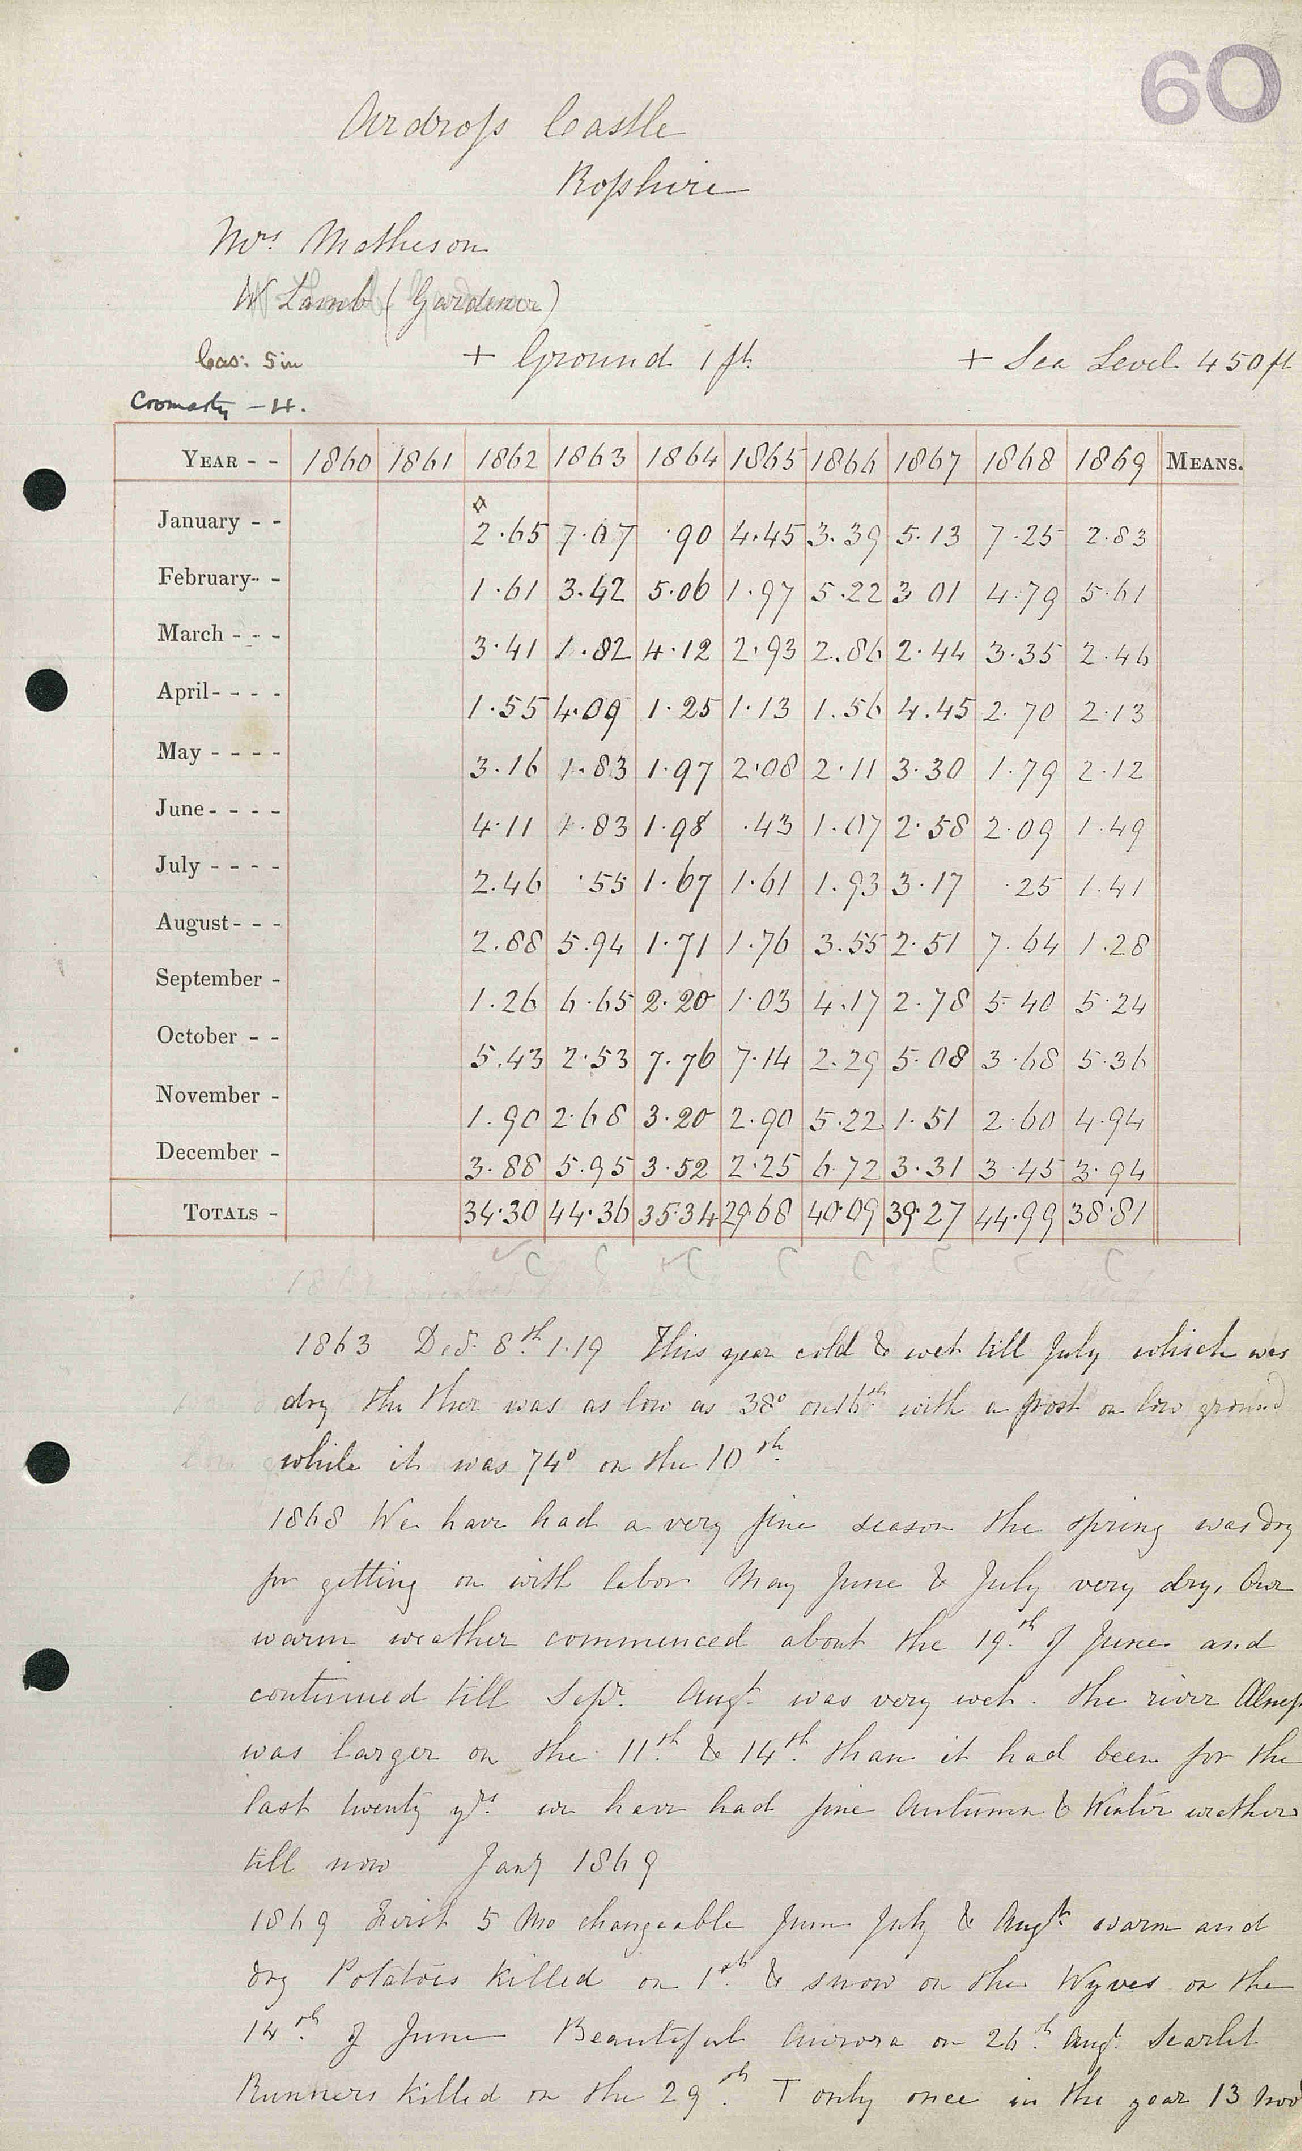 60
Ardross Castle
Rosshire
Mrs. Matheson
W Lamb (Gardener)
Cas: 5in + Ground 1 ft. + Sea Level 450ft
Cromarty - H.
YEAR - - 1860 1861 1862 1863 1864 1865 1866 1867 1868 1869 MEANS.
January - - 2.65 7.07 .90 4.45 3.39 5.13 7.25 2.83
February- - 1.61 3.42 5.06 1.97 5.22 3 01 4.79 5.61
March - - - 3.41 1.82 4.12 2.93 2.86 2.44 3.35 2.46
April- - - - 1.55 4.09 1.25 1.13 1.56 4.45 2.70 2.13
May - - - - 3.16 1.83 1.97 2.08 2.11 3.30 1.79 2.12
June- - - - 4.11 1.83 1.98 .43 1.07 2.58 2.09 1.49
July - - - - 2.46 .55 1.67 1.61 1.93 3.17 .25 1.41
August- - - 2.88 5.94 1.71 1.76 3.55 2.51 7.64 1.28
September - 1.26 6.65 2.20 1.03 4.17 2.78 5.40 5.24
October - - 5.43 2.53 7.76 7.14 2.29 5.08 3.68 5.36
November - 1.90 2.68 3.20 2.90 5.22 1.51 2.60 4.94
December - 3.88 5.95 3.52 2.25 6.72 3.31 3.45 3.94
TOTALS - 34.30 44.36 35.34 29.68 40.09 39.27 44.99 38.81
C C C C C C C C
1863 Dec. 8th 1.19 This year cold & wet till July which was
dry the ther was as low as 38° on 16th with a frost on low ground
while it was 74° on the 10th.
1868 We have had a very fine season the spring was dry
for getting on with labor May June & July very dry, Our
warm weather commenced about the 19th of June and
continued till Sepr. Augt was very wet. the river Alness
was larger on the 11th & 14th than it had been for the
last twenty yrs. we have had fine Autumn & Winter weather
till now Jany 1869
1869 First 5 Mo changeable June July & Augt warm and
dry Potatoes killed on 1st & snow on the Wyves on the
14th of June Beautiful Aurora on 26th Augt Scarlet
Runners killed on the 29th. T only once in the year 13 Nov